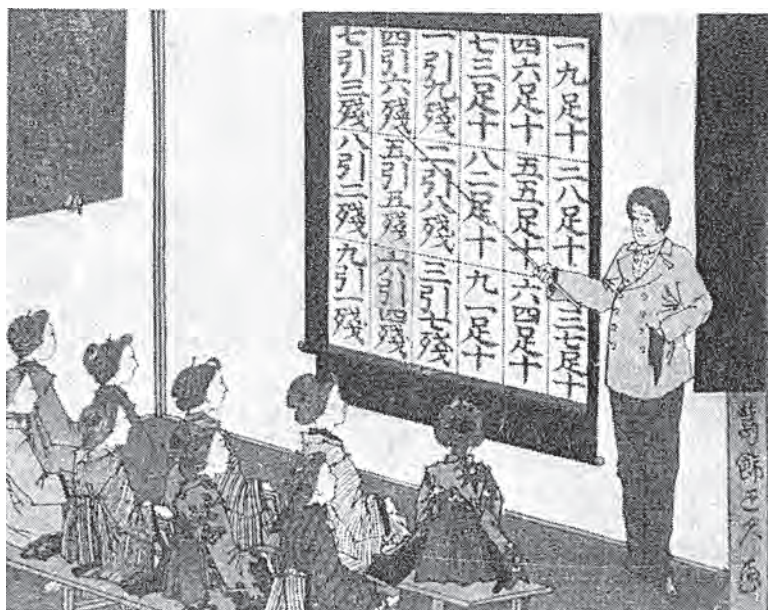 一九足十 二八足十 三七足十
四六足十 五五足十 六四足十
七三足十 八二足十 九一足十
一引九殘 二引八殘 三引七殘
四引六殘 五引五殘 六引四殘
七引三殘 八引二殘 九引一殘
葛飾正久画